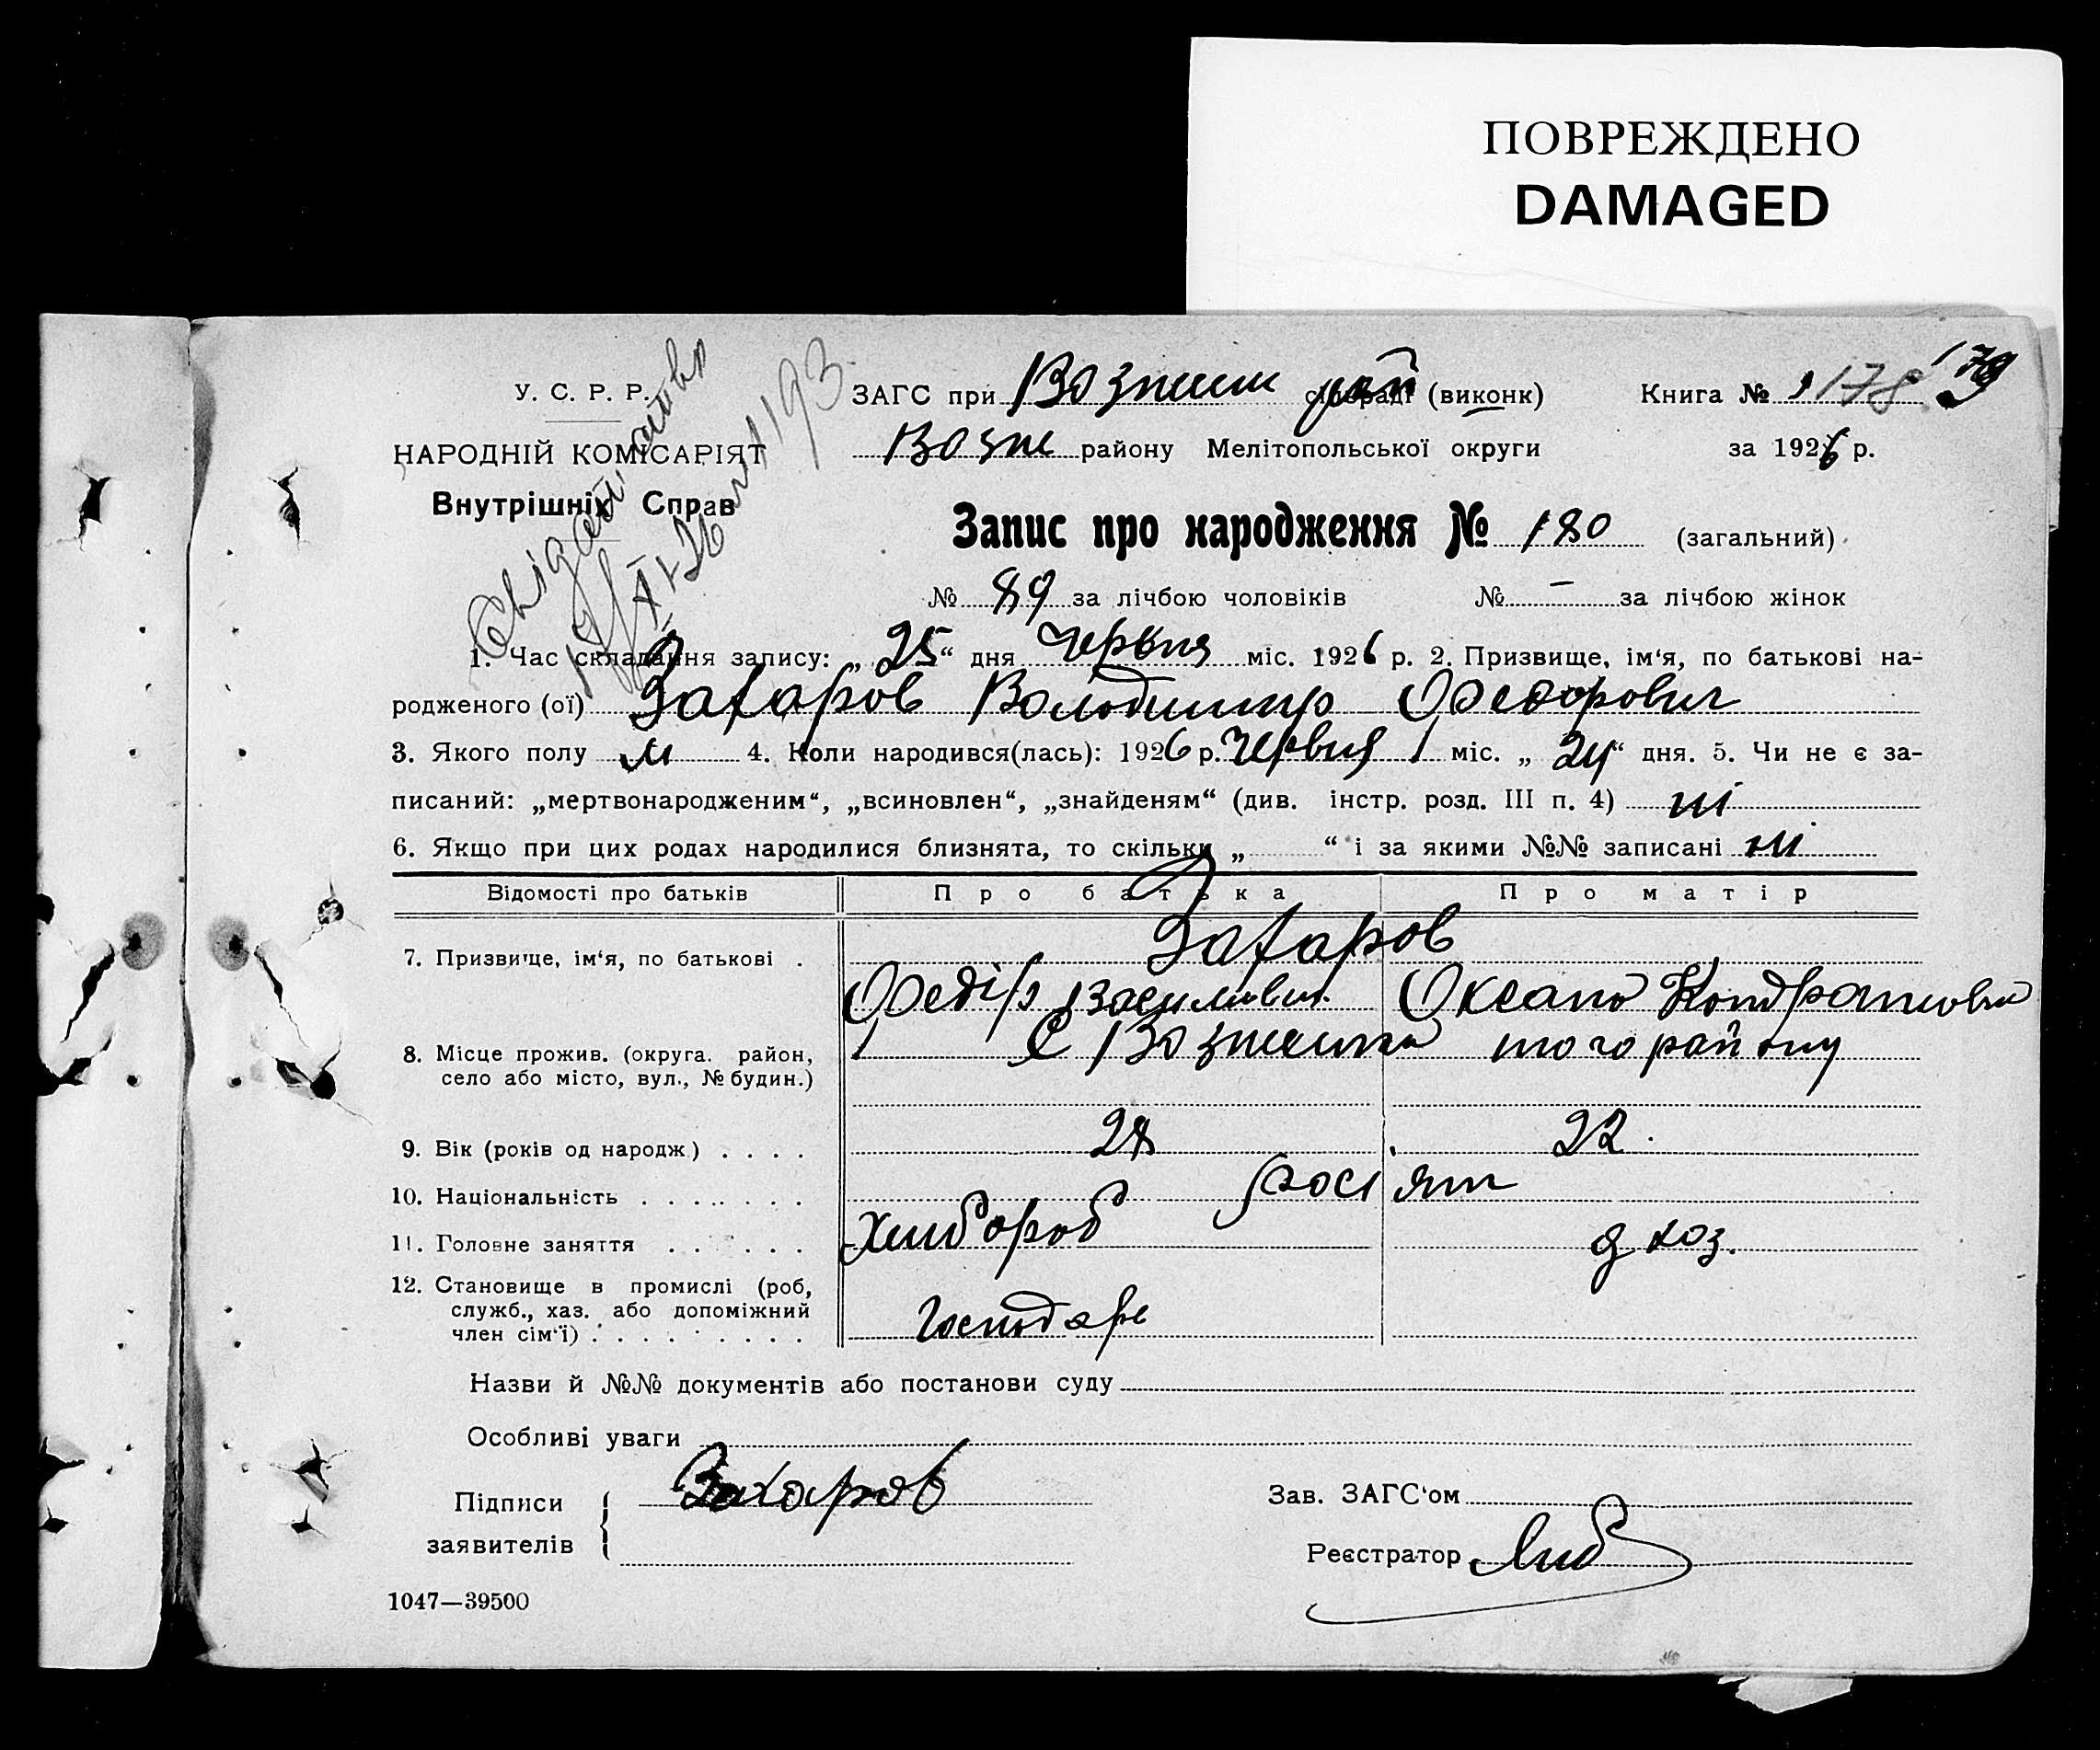 ПОВРЕЖДЕНО
DAMAGED
У. С. Р. Р.
НАРОДНІЙ КОМІСАРІЯТ
Внутрішніх Справ
193
ЗАГС при Вознесен рай (виконк)
Книга № 178 179
Возне району Мелітопольської округи
за 1926 р.
Запис про народження № 180 (загальний)
№ 89 за лічбою чоловіків № – за лічбою жінок
1. Час складання запису: „ 25 “ дня червня міс. 1926 р. 2. Призвище, ім‘я, по батькові на-
родженого (ої) Захаров Володимир Федорович
3. Якого полу м 4. Коли народився(лась): 1926 р. Червня міс. „ 24 “ дня. 5. Чи не є за-
писаний: „мертвонародженим“, „всиновлен“, „знайденям“ (див. інстр. розд. III п. 4) ні
6. Якщо при цих родах народилися близнята, то скільки „ “ і за якими №№ записані ні
Відомості про батьків Про батька Про матір
7. Призвище, ім‘я, по батькові . Захаров
Федір Василович Оксана Кондратовна
8. Місце прожив. (округа. район,
село або місто, вул., № будин.) С Вознесенка того району
9. Вік (років од народж) . . . . 28 22.
10. Національність . . . . . . . росіян
11. Головне заняття . . . . . . Хлибороб д хоз.
12. Становище в промислі (роб,
служб., хаз. або допоміжний
член сім‘ї) . . . . . . . . . . Господарь
Назви й №№ документів або постанови суду
Особливі уваги
Підписи
заявителів
Захаров
Зав. ЗАГС‘ом
Реєстратор
1047—39500